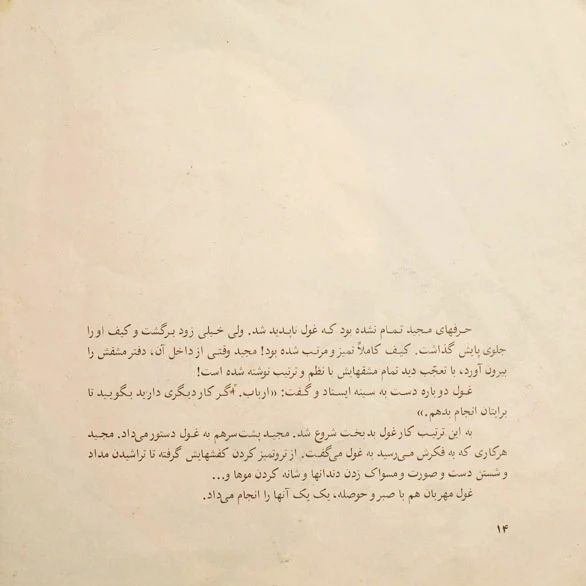 حرفهای مجید تمام نشده بود که غول ناپدید شد. ولی خیلی زود برگشت و کیف او را
جلوی پایش گذاشت. کیف کاملاً تمیز و مرتب شده بود! مجید وقتی از داخل آن، دفتر مشقش را
بیرون آورد، با تعجّب دید تمام مشقهایش با نظم و ترتیب نوشته شده است!
غول دوباره دست به سینه ایستاد و گفت: «ارباب. اگر کار دیگری دارید بگویید تا
برایتان انجام بدهم.»
به این ترتیب کار غول بدبخت شروع شد. مجید پشت سرهم به غول دستور می‌داد. مجید
هرکاری که به فکرش می‌رسید به غول می‌گفت. از تروتمیز کردن کفشهایش گرفته تا تراشیدن مداد
و شستن دست و صورت و مسواک زدن دندانها و شانه کردن موها و...
غول مهربان هم با صبر و حوصله، یک یک آنها را انجام می‌داد.
۱۴